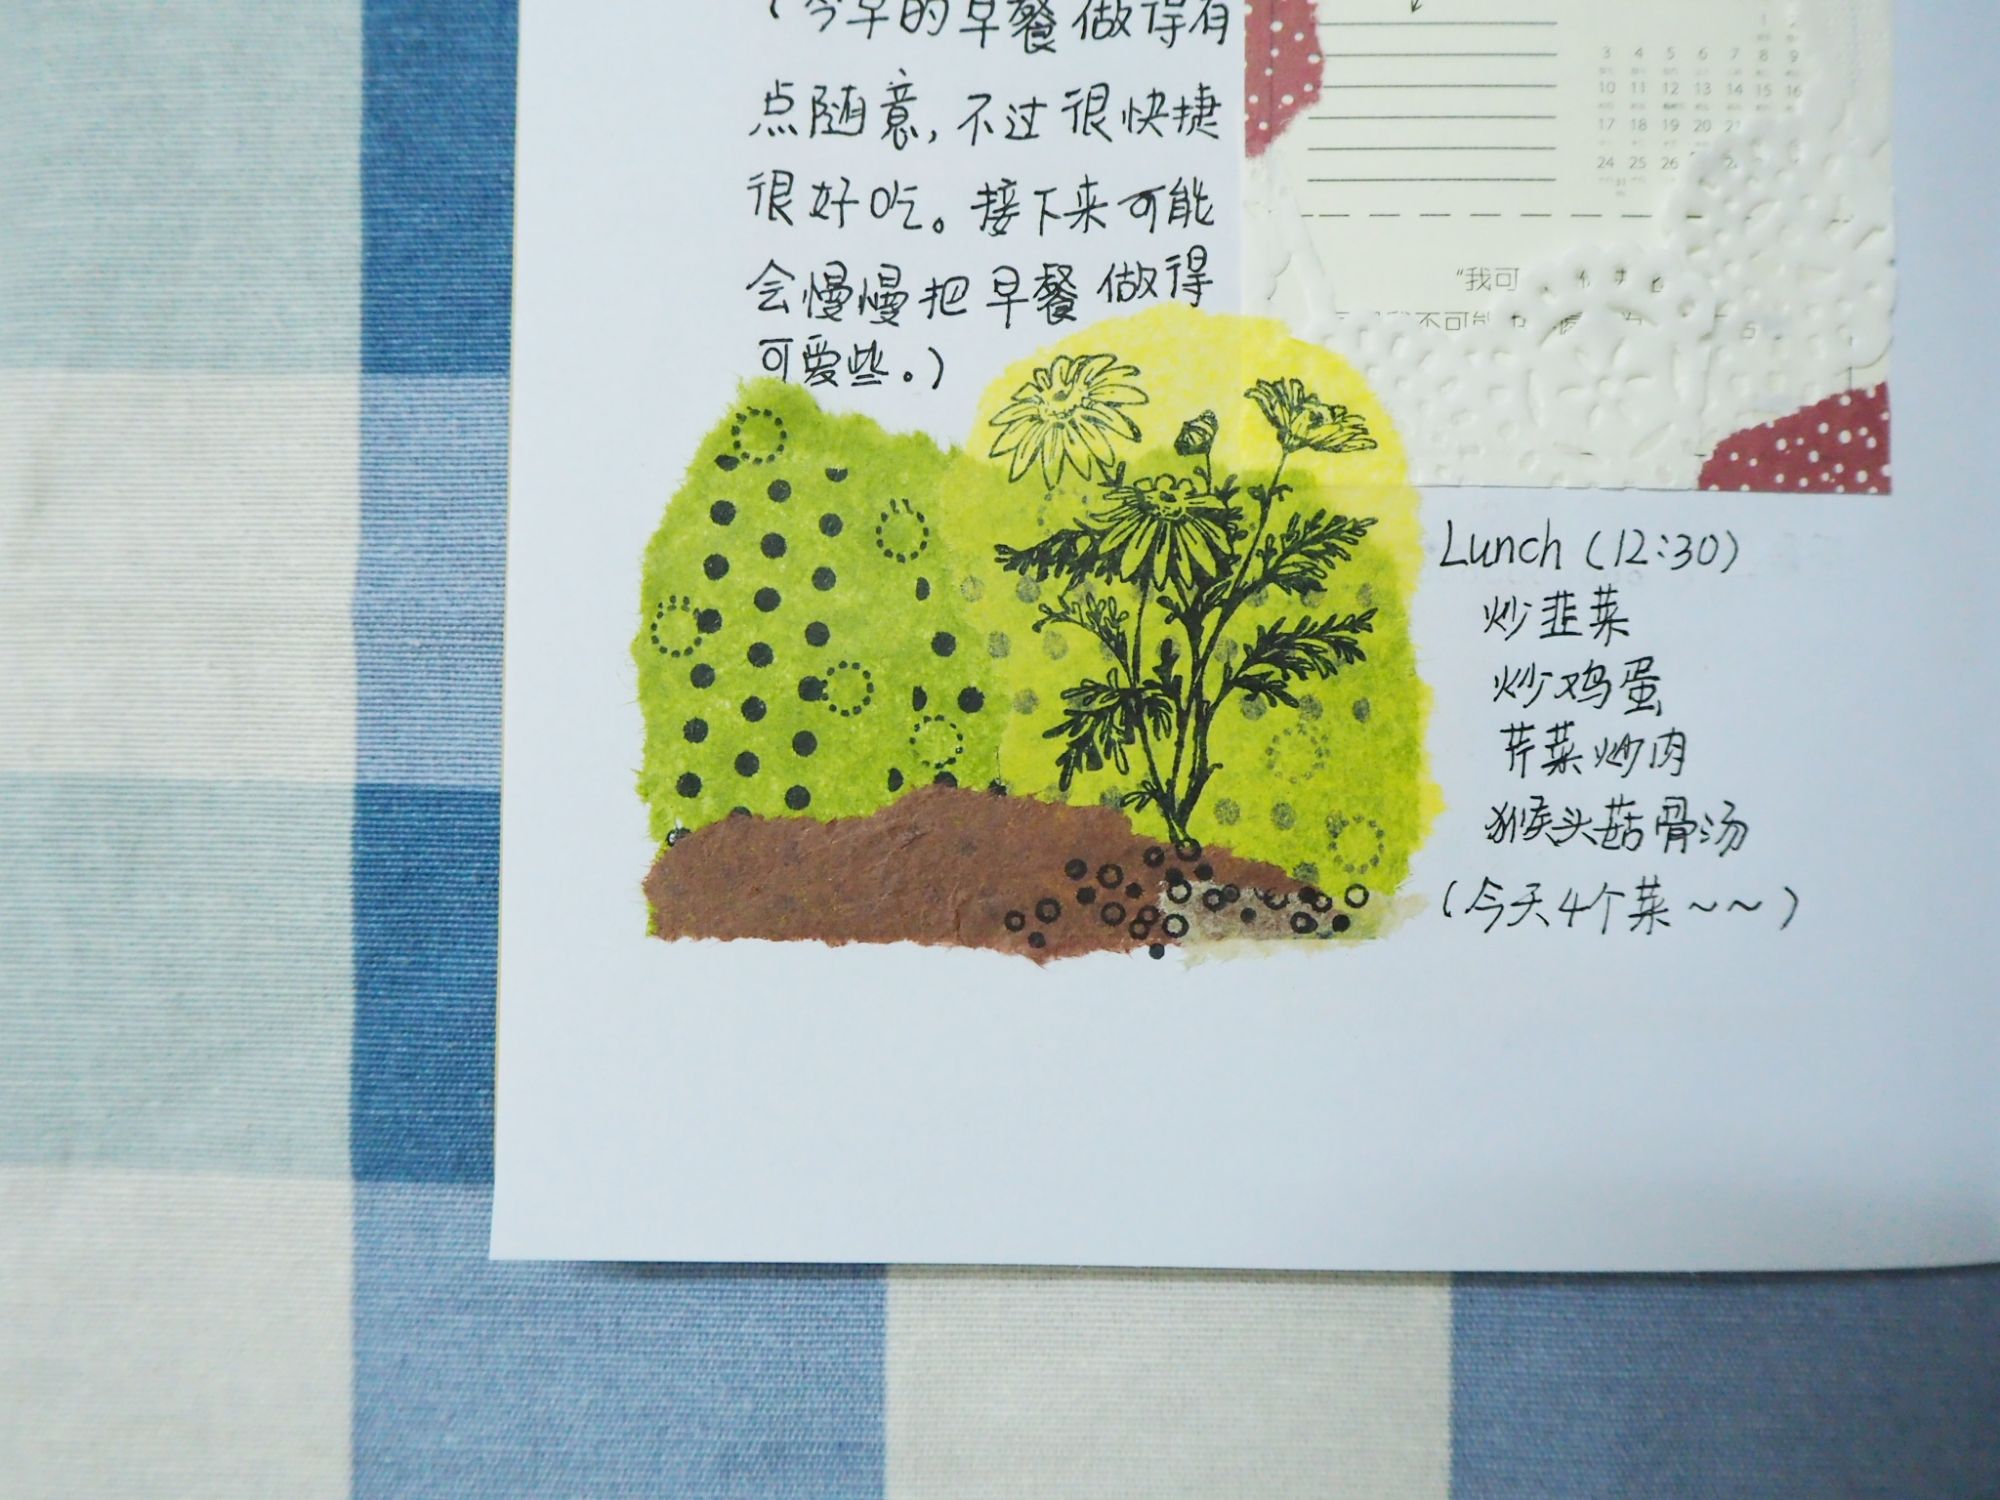 （今早的早餐做得有
点随意，不过很快捷
很好吃。接下来可能
会慢慢把早餐做得
可爱些。）
3 4 5 6 7 8 9
10 11 12 13 14 15 16
17 18 19 20 21
24 25 26
“我可
不可能
Lunch（12:30）
炒韭菜
炒鸡蛋
芹菜炒肉
猴头菇骨汤
（今天4个菜～～）